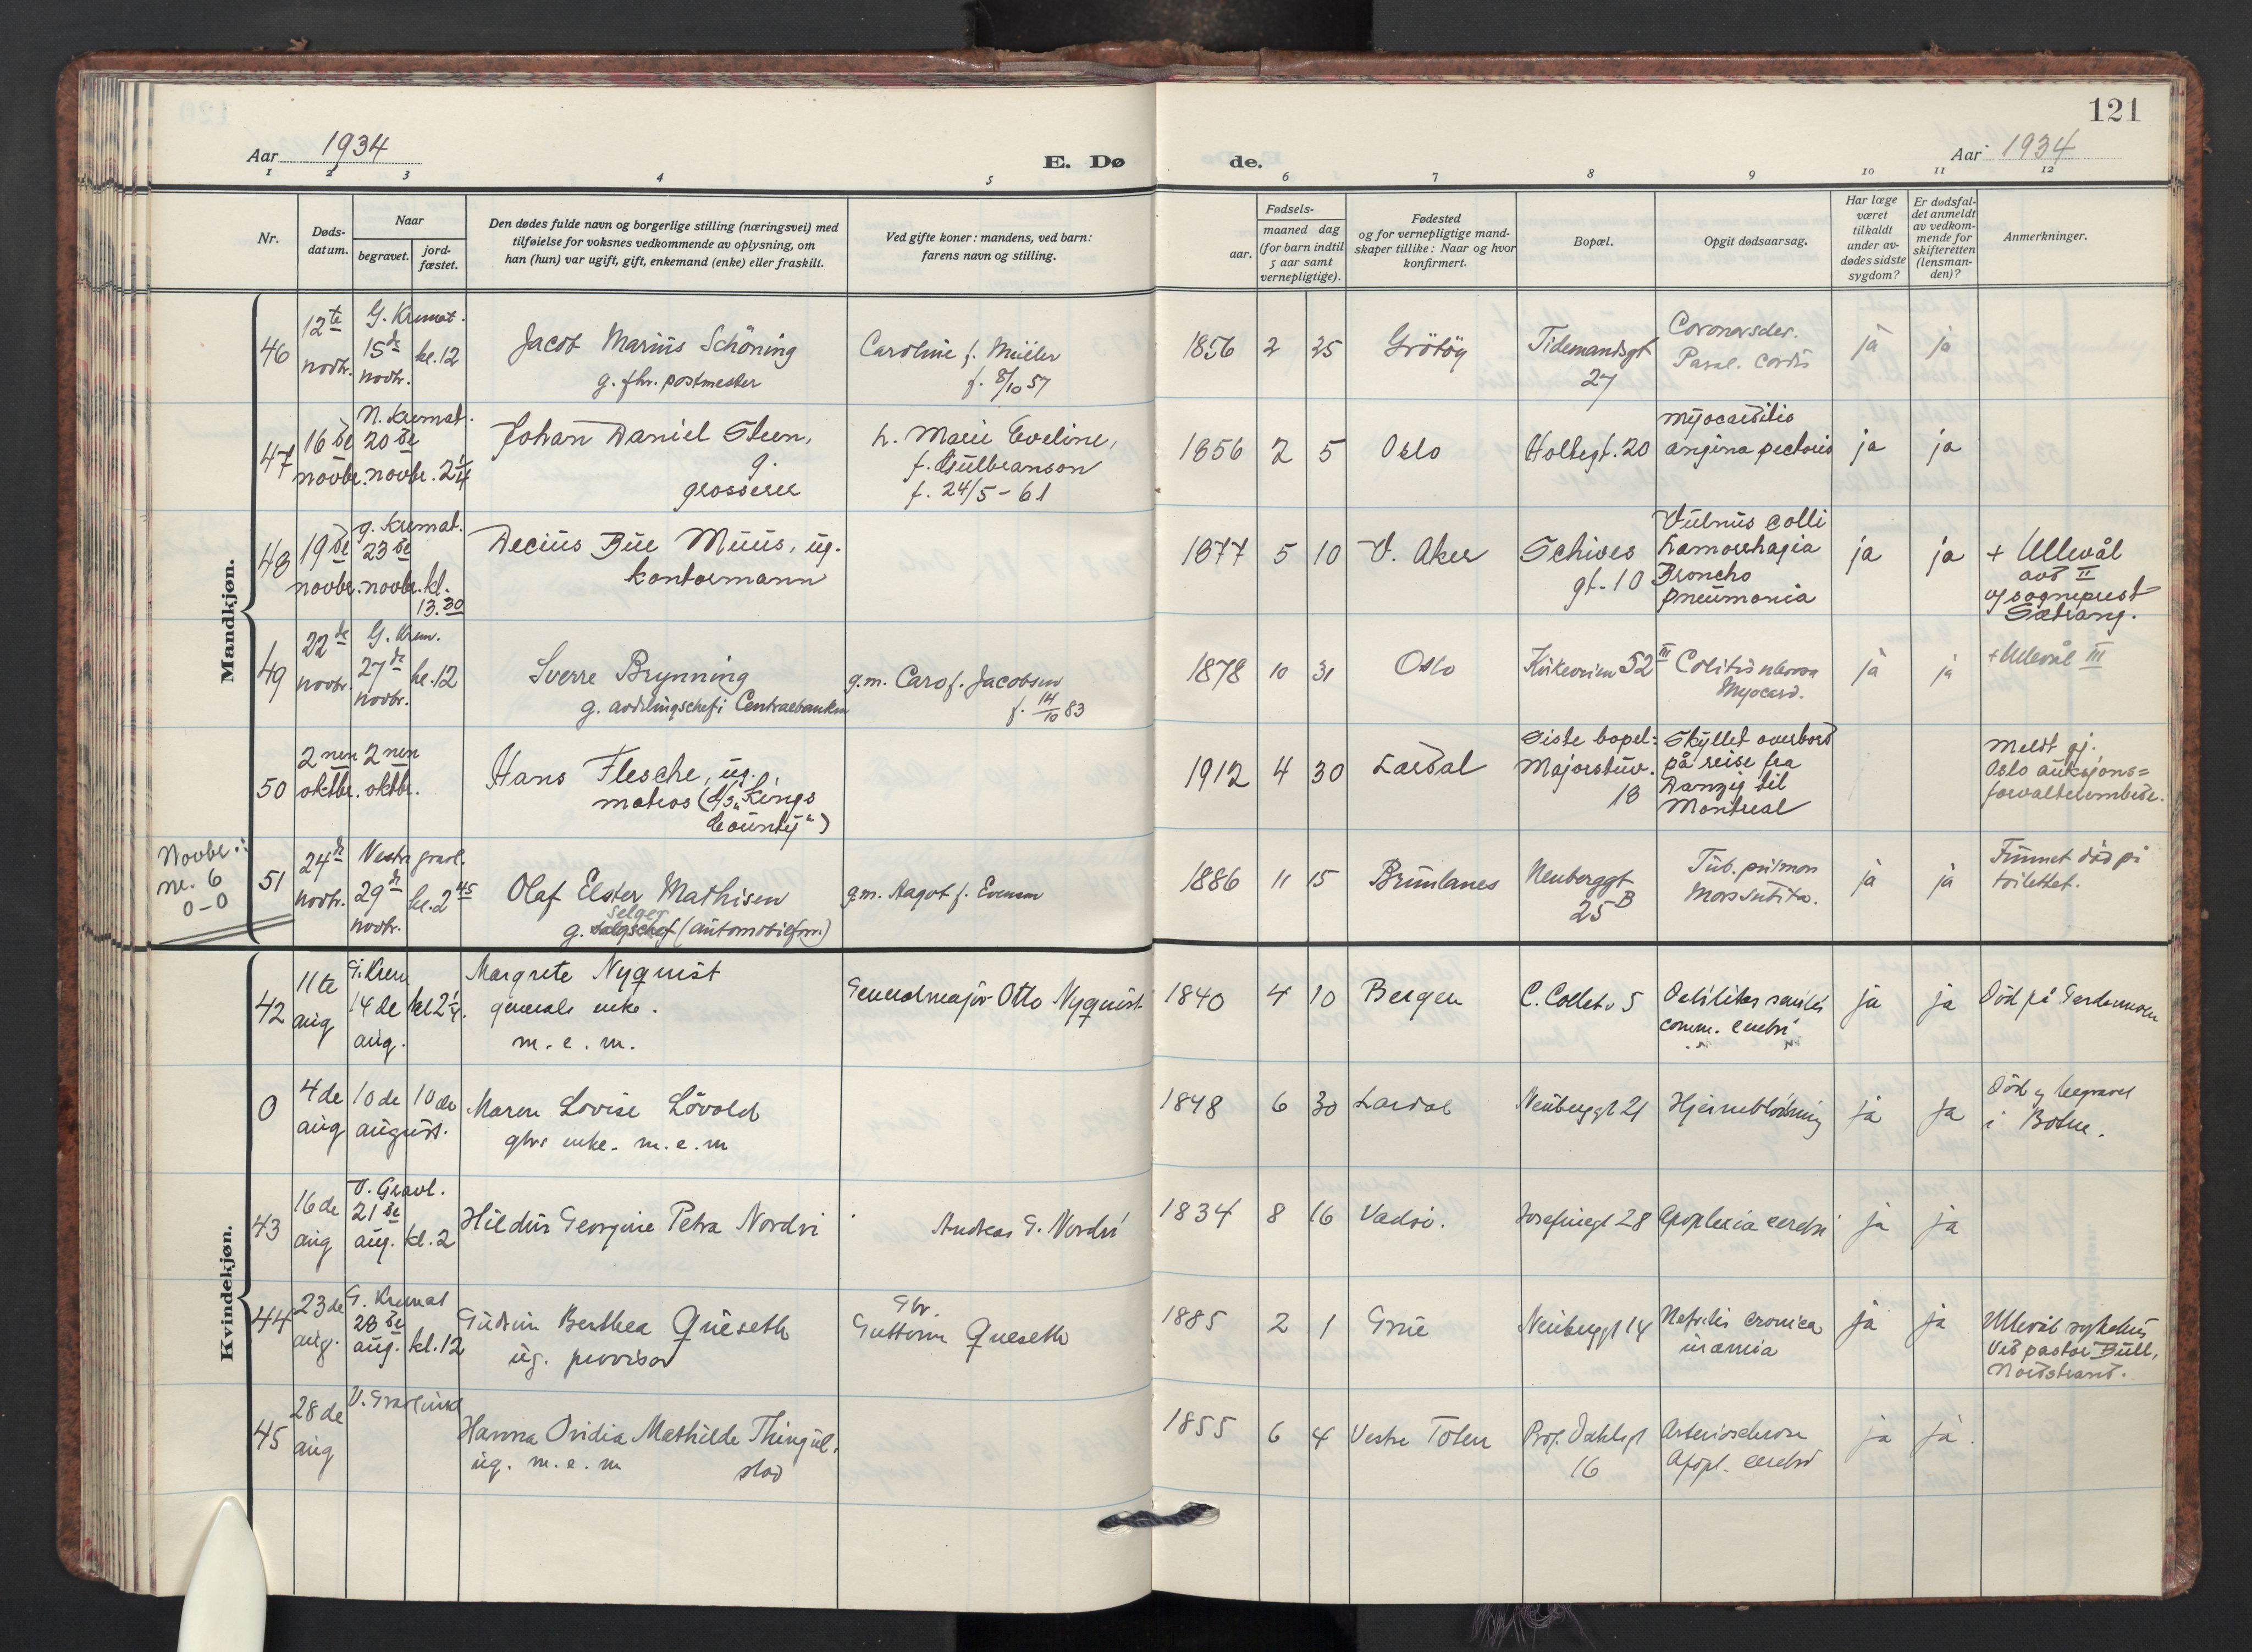 121
Aar 1934
E. Dø
de.
Aar 1934
1 2 3 4 5 6 7 8 9 10 11 12
Nr.
Døds-
datum.
Naar
begravet.
jord-
fæstet.
Den dødes fulde navn og borgerlige stilling (næringsvei) med
tilføielse for voksnes vedkommende av oplysning, om
han (hun) var ugift, gift, enkemand (enke) eller fraskilt.
Ved gifte koner: mandens, ved barn:
farens navn og stilling.
Fødsels-
aar.
maaned dag
(for barn indtil
5 aar samt
vernepligtige).
Fødested
og for vernepligtige mand-
skaper tillike: Naar og hvor
konfirmert.
Bopæl.
Opgit dødsaarsag.
Har læge
været
tilkaldt
under av-
dødes sidste
sygdom?
Er dødsfal-
det anmeldt
av vedkom-
mende for
skifteretten
(lensman-
den)?
Anmerkninger.
Mandkjøn.
46
12te
novbr.
G. Kremat.
15de
novbr.
kl. 12
Jacob Marius Schöning
g. fhv. postmester
Caroline f. Müller
f. 8/10 57
1856 2 25
Grötöy
Tidemandsgt
27
Coronarscler.
Paral. cordis
ja ja
47
16de
novbr.
N. Kremat.
20de
novbr. 2 1/4
Johan Daniel Steen,
g.
grosserer
h. Marie Eveline,
f. Gulbranson
f. 24/5-61
1856 2 5
Oslo
Holtegt. 20
Myocarditis
angina pectoris
ja ja
48
19de
novbr.
g. Kremat.
23de
novbr. kl.
13.30
Decius Bue Muus, ug.
kontormann
1877 5 10
V. Aker
Schives
gt. 10
Vulnus colli
Hämorrhagia
Broncho
pneumonia
ja ja
+ Ullevål
avd II
v/sogneprest
Sætrang.
49
22de
novbr.
G. Krem.
27de
novbr.
kl. 12
Sverre Brynning
g. avdelingschef i Centralbanken
g.m. Caro f. Jacobsen
f. 14/10 83
1878 10 31
Oslo
Kirkeveien 52 III
Colitis ulcerosa
Myocard.
ja ja
+ Ullevål III
50
2nen
oktbr.
2nen
oktbr.
Hans Flesche, ug.
matros (d/s "Kings
County")
1912 4 30
Lardal
Siste bopel:
Majorstuv.
18
Skyllet overbord
på reise fra
Danzig til
Montreal
Meldt gj.
Oslo auksjons=
forvalterembede.
Novbr.:
nr. 6
0-0
51
24de
novbr.
Vestre gravl.
29de
novbr.
kl. 2 45
Olaf Elster Mathisen
selger
g. salgschef (automobilfirm.)
g.m. Ragot f. Evensen
1886 11 15
Brunlanes
Neuberggt
25 B
Tub. pulmon
Mors subita.
ja ja
Funnet död på
toilettet.
Kvindekjøn.
42
11te
aug
G. Krem
14de
aug.
kl 2 1/4.
Margrete Nyquist
generals enke.
m. e. m.
Generalmajor Otto Nyquist
1840 4 10
Bergen
C. Collets v 5
Debilitas senilis
comm. cerebri
ja ja
Död på Gardermoen
0
4de
aug
10de
august.
10de
Maren Lovise Lövold
gbrs enke. m. e. m
1848 6 30
Lardal
Neuberggt 21
Hjerneblödning
ja ja
Död og begravet
i Botne.
43
16de
aug
V. Gravl.
21de
aug.
kl. 2
Hildur Georgine Petra Nordvi
Andreas G. Nordvi
1834 8 16
Vadsö.
Josefinegt 28
Apoplexia cerebri
ja ja
44
23de
aug.
G. Kremat
28de
aug.
kl. 12
Gudrun Berthea Quèseth
ug. provisor
Gbr.
Guttorm Queseth
1885 2 1
Grue
Neuberggt 14
Nefritis cronica
uræmia
ja ja
Ullevål sykehus
Ved pastor Bull,
Nordstrand.
45
28de
aug
V. Gravlund
Hanna Ovidia Mathilde Thingul-
ug. m. e. m stad
1855 6 4
Vestre Toten
Prof. Dahlsgt
16
Arteriosclerose
Apopl. cerebri
ja ja.